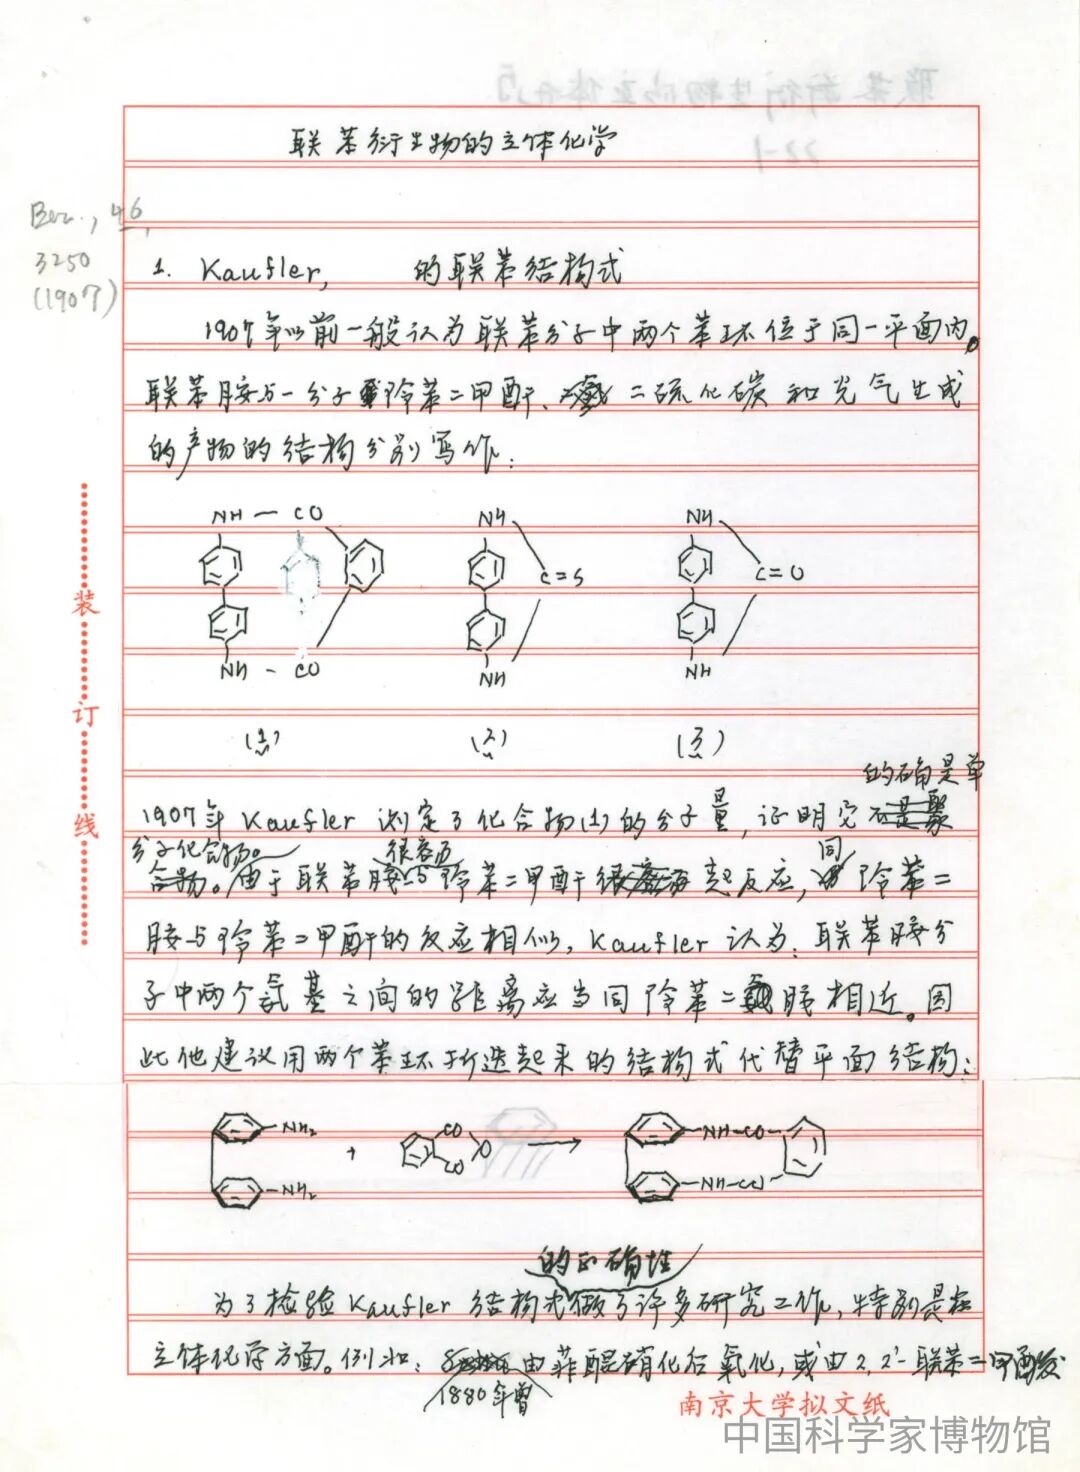 联苯衍生物的立体化学
Ber., 46,
3250
(1907)
1. Kaufler, 的联苯结构式
1907年以前一般认为联苯分子中两个苯环位于同一平面内。
联苯胺与一分子邻苯二甲酐、二硫化碳和光气生成
的产物的结构分别写作:
NH — CO
NH — CO
(1)
NH
C=S
NH
(2)
NH
C=O
NH
(3)
的确是单
1907年Kaufler测定了化合物(1)的分子量,证明它
分子化合物。 很容易 同
由于联苯胺与邻苯二甲酐起反应, 邻苯二
胺与邻苯二甲酐的反应相似, Kaufler认为: 联苯胺分
子中两个氨基之间的距离应当同邻苯二胺相近。因
此他建议用两个苯环折迭起来的结构式代替平面结构:
NH₂ + CO O → NH-CO
NH₂ CO NH-CO
的正确性
为了检验Kaufler结构式做了许多研究工作, 特别是在
立体化学方面。例如: 由菲醌硝化后氧化, 或由2,2'-联苯二甲酸
1880年曾
装订线
南京大学拟文纸
中国科学家博物馆